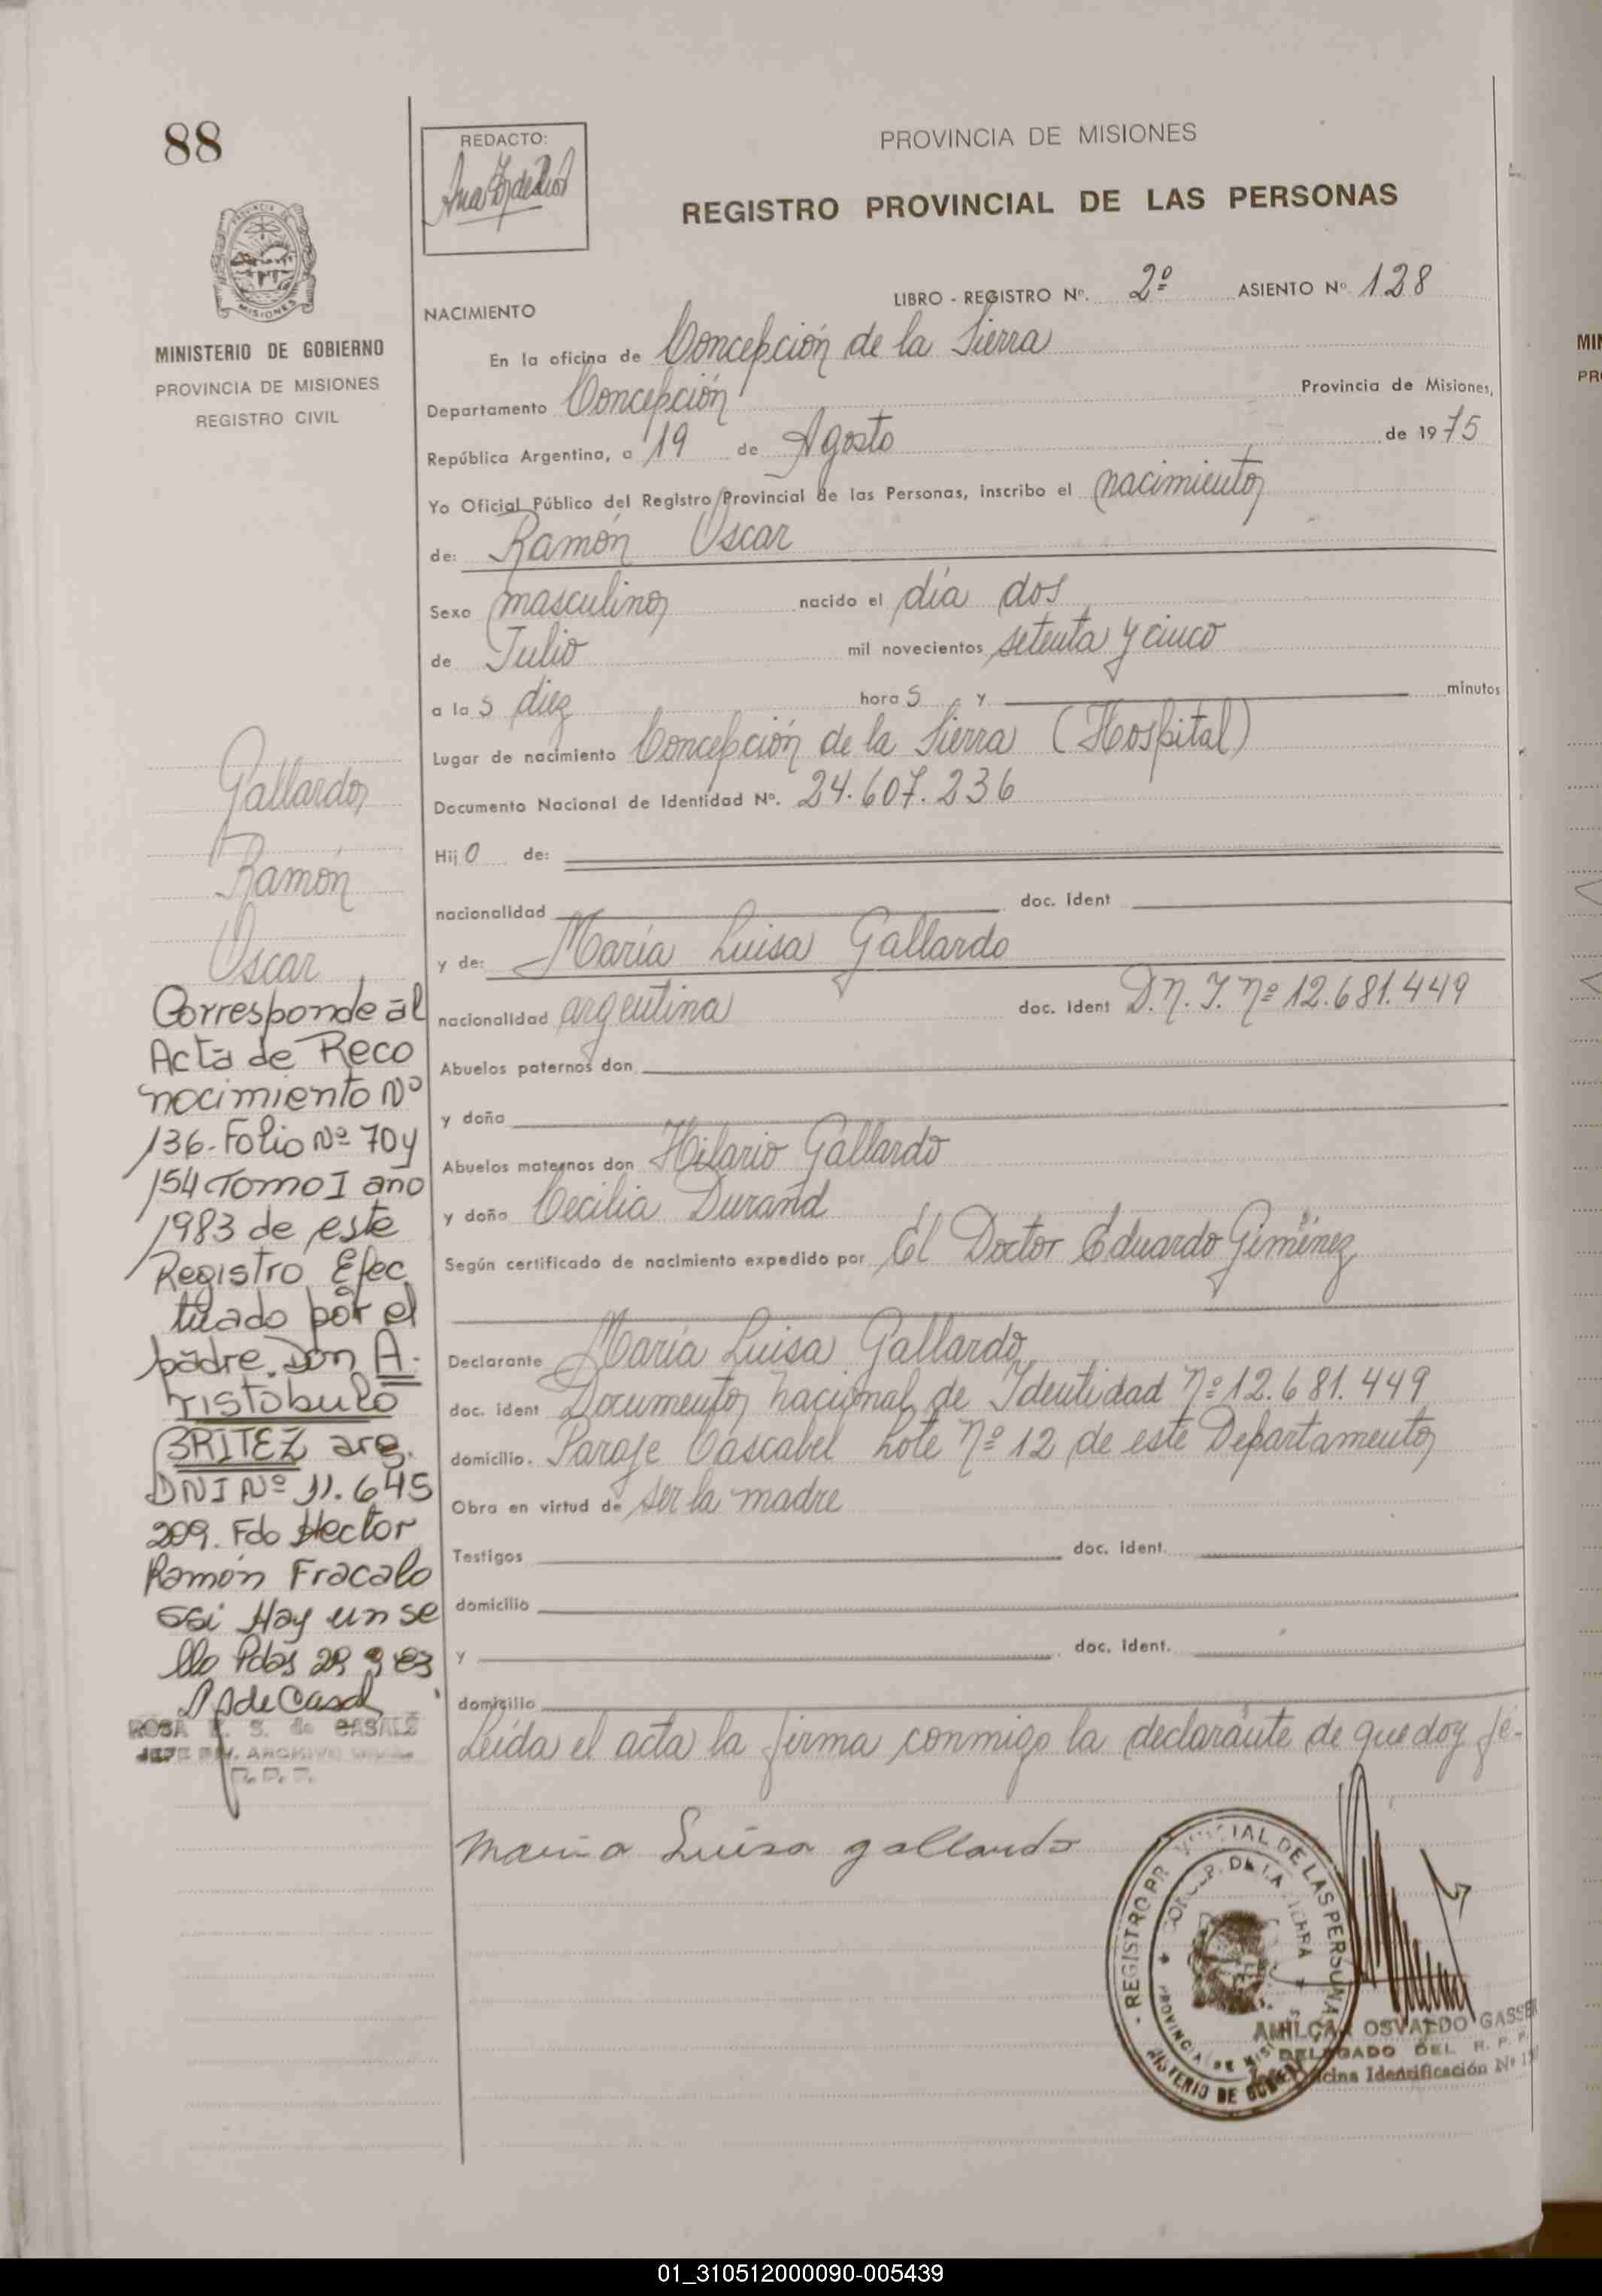 88
REDACTO:
PROVINCIA DE MISIONES
REGISTRO PROVINCIAL DE LAS PERSONAS
LIBRO - REGISTRO Nº. 2º ASIENTO Nº 128
NACIMIENTO
MINISTERIO DE GOBIERNO
PROVINCIA DE MISIONES
REGISTRO CIVIL
En la oficina de Concepción de la Sierra
Departamento Concepción Provincia de Misiones,
República Argentina, a 19 de Agosto de 1975
Yo Oficial Público del Registro Provincial de las Personas, inscribo el nacimiento
de: Ramón Oscar
Sexo masculino nacido el día dos
de Julio mil novecientos setenta y cinco
a las diez horas y minutos
Lugar de nacimiento Concepción de la Sierra (Hospital)
Documento Nacional de Identidad Nº. 24.607.236
Hijo de:
nacionalidad doc. ident
y de: María Luisa Gallardo
nacionalidad argentina doc. ident D.N.I. Nº 12.681.449
Abuelos paternos don
y doña
Abuelos maternos don Hilario Gallardo
y doña Cecilia Durand
Según certificado de nacimiento expedido por El Doctor Eduardo Giménez
Declarante María Luisa Gallardo
doc. ident Documento nacional de Identidad Nº 12.681.449
domicilio. Paraje Cascabel Lote Nº 12 de este Departamento
Obra en virtud de ser la madre
Testigos doc. ident.
domicilio
y doc. ident.
domicilio
Leída el acta la firma conmigo la declarante de que doy fé.
Maria Luisa gallardo
Gallardo
Ramón
Oscar
Corresponde al
Acta de Reco
nocimiento Nº
136-Folio Nº 70 y
154 Tomo I año
1983 de este
Registro Efec
tuado por el
padre Don A.
ristobulo
BRITEZ arg.
DNI Nº 11.645
209. Fdo Hector
Ramón Fracalo
ssi Hay un se
llo Pdas 29 9 83
ROSA E. S. de CASALE
JEFE DIV. ARCHIVO
R.P.P.
REGISTRO PROVINCIAL DE LAS PERSONAS
CONCEP. DE LA SIERRA
PROVINCIA DE MISIONES
MINISTERIO DE GOBIERNO
AMILCAR OSVALDO GASSE
DELEGADO DEL R. P. P.
Oficina Identificación Nº
MIN
PRO
01_310512000090-005439